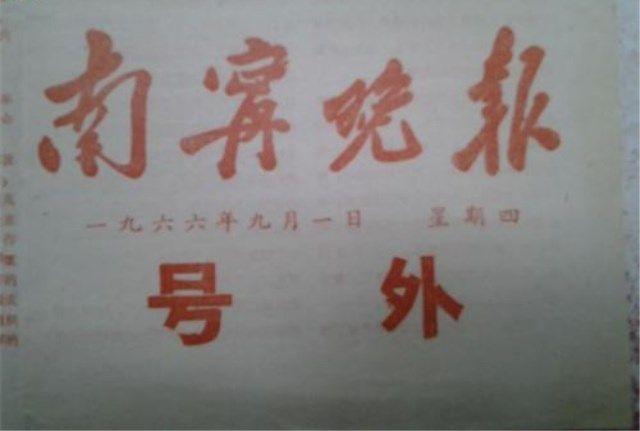 南宁晚报
一九六六年九月一日 星期四
号 外